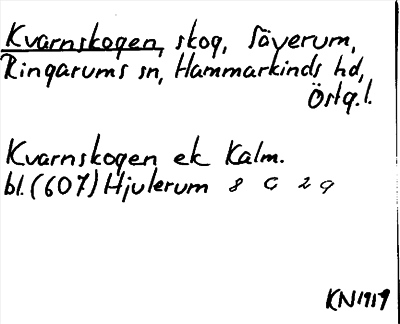 Kvarnskogen, skog, Säverum,
Ringarums sn, Hammarkinds hd,
Östg.l.
Kvarnskogen ek Kalm.
bl. (607) Hjulerum 8 G 2 g
KN 1919